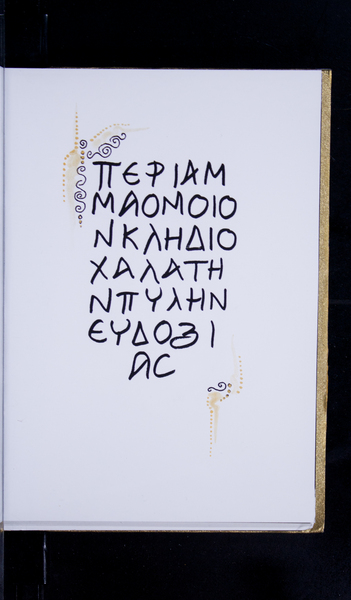 ΠΕΡΙΑΜ
ΜΑΟΜΟΙΟ
ΝΚΛΗΔΙΟ
ΧΑΛΑΤΗ
ΝΠΥΛΗΝ
ΕΥΔΟΞΙ
ΑϹ